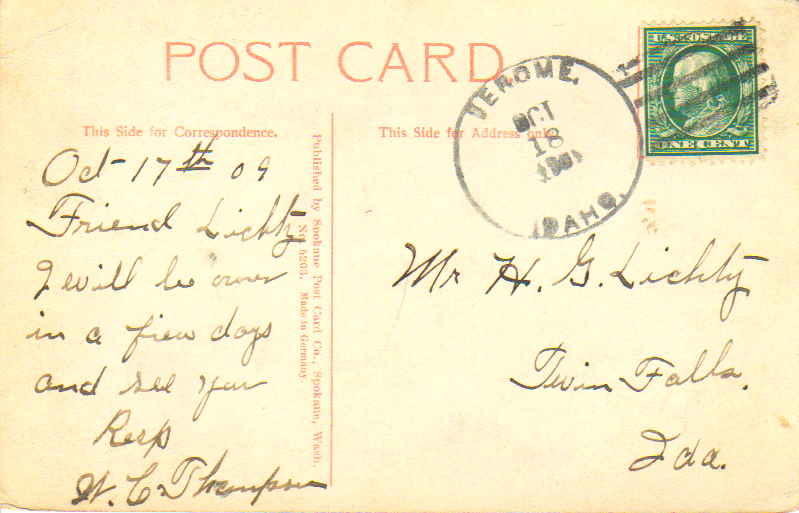 POST CARD
This Side for Correspondence.
This Side for Address only.
JEROME,
OCT
18
IDAHO.
ONE CENT
Oct 17th 09
Friend Lichty
I will be over
in a few days
and see you
Resp
W. C. Thompson
Published by Spokane Post Card Co., Spokane, Wash.
No. 5203. Made in Germany
Mr H. G. Lichty
Twin Falls.
Ida.